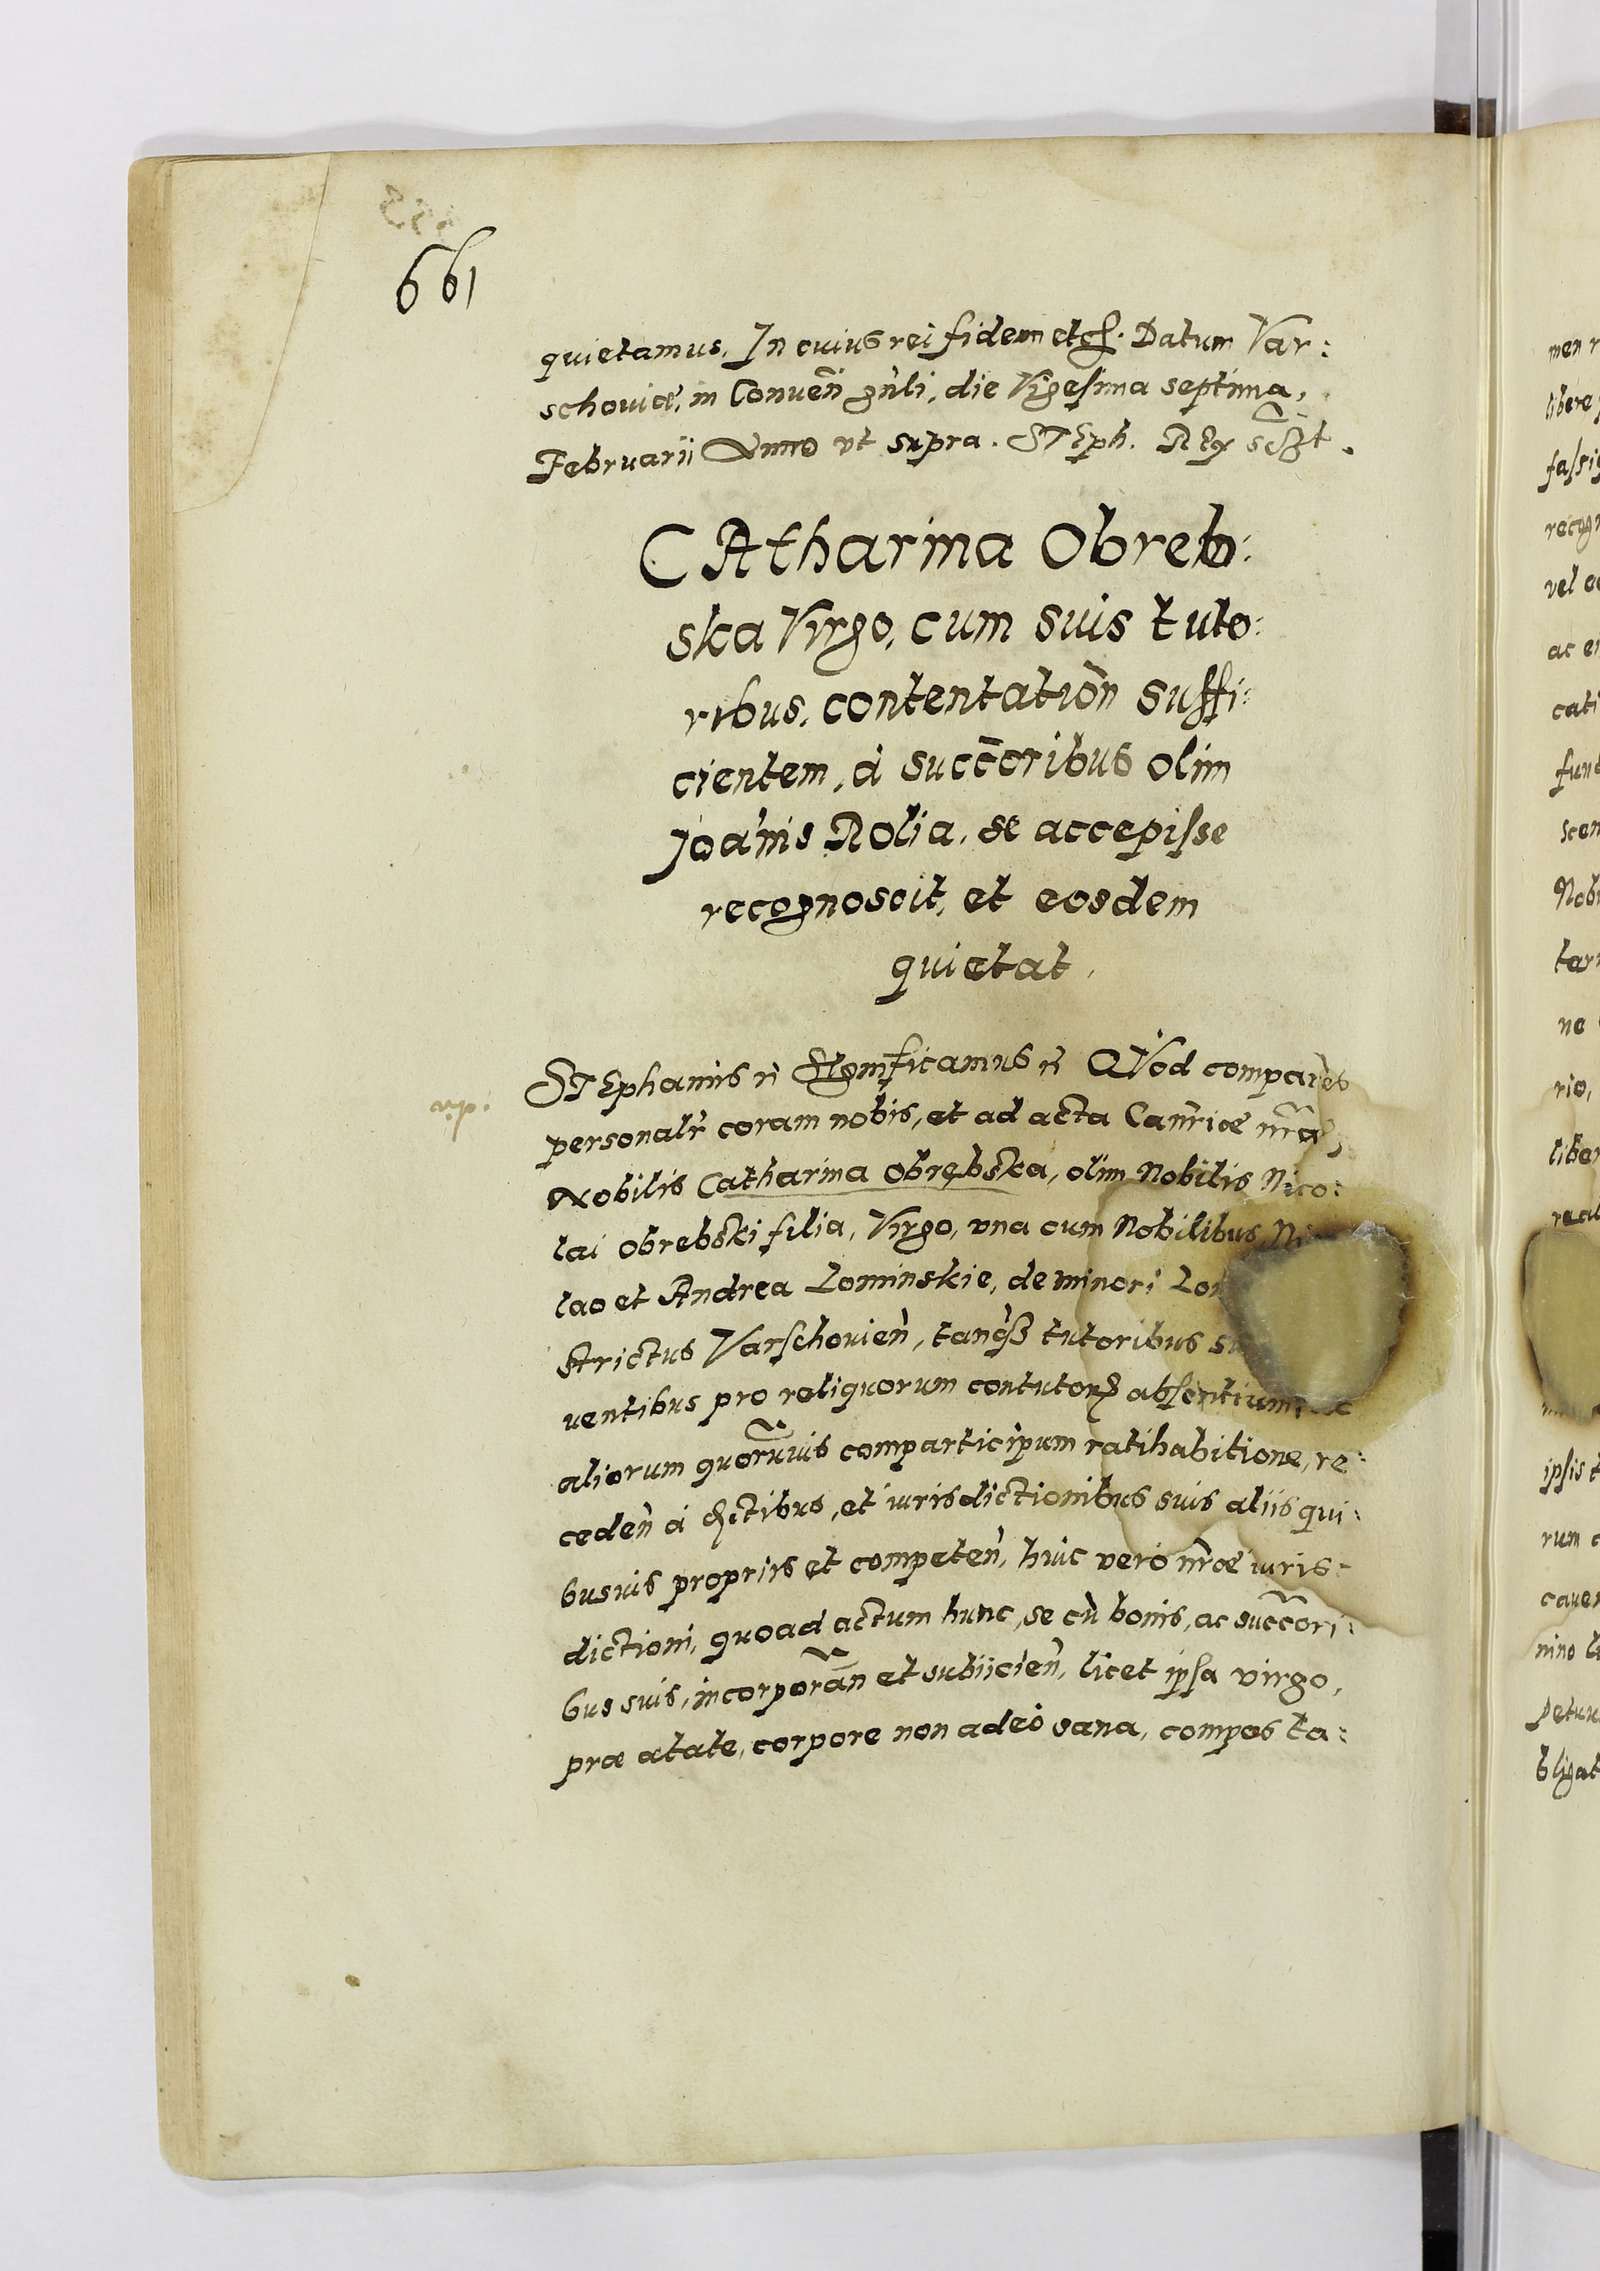 661
quietamus. In cuius rei fidem etc. Datum Var:
schoviæ, in Conven̄ gn̄li, die Vigesima septima,
Februarii Anno ut supra. STEph. REX
CAtharina Obreb:
ska Virgo, cum suis tuto:
ribus, contentation̄ suffi:
cientem, à succ̄oribus olim
Joan̄is Rolia, se accepisse
recognoscit, et eosdem
quietat.
STEphanus Significamus QVod comparens
personalr̄ coram nobis, et ad acta Canr̄iæ nr̄æ,
Nobilis Catharina Obrębska, olim Nobilis Nico:
lai Obrebski filia, Virgo, una cum Nobilibus
lao et Andrea Lominskie, de minori
strictus Varschovien̄, tanq̃ tutoribus
ventibus pro reliquorum contutorꝝ absentium,
aliorum quorumvis comparticipum ratihabitione, re:
ceden̄ à et iurisdictionibus suis aliis qui:
busvis propriis et competen̄, huic verò nr̄æ iuris:
dictioni, quoad actum hunc, se cū bonis, ac succ̄ori:
bus suis, incorporan̄ et subiicien̄, licet ipsa virgo,
præ ætate, corpore non adeò sana, compos ta:
men r
libere
recogn
vel
ac
cati
scen
ne
rio,
liber
ipsis
rum
caven
bligat